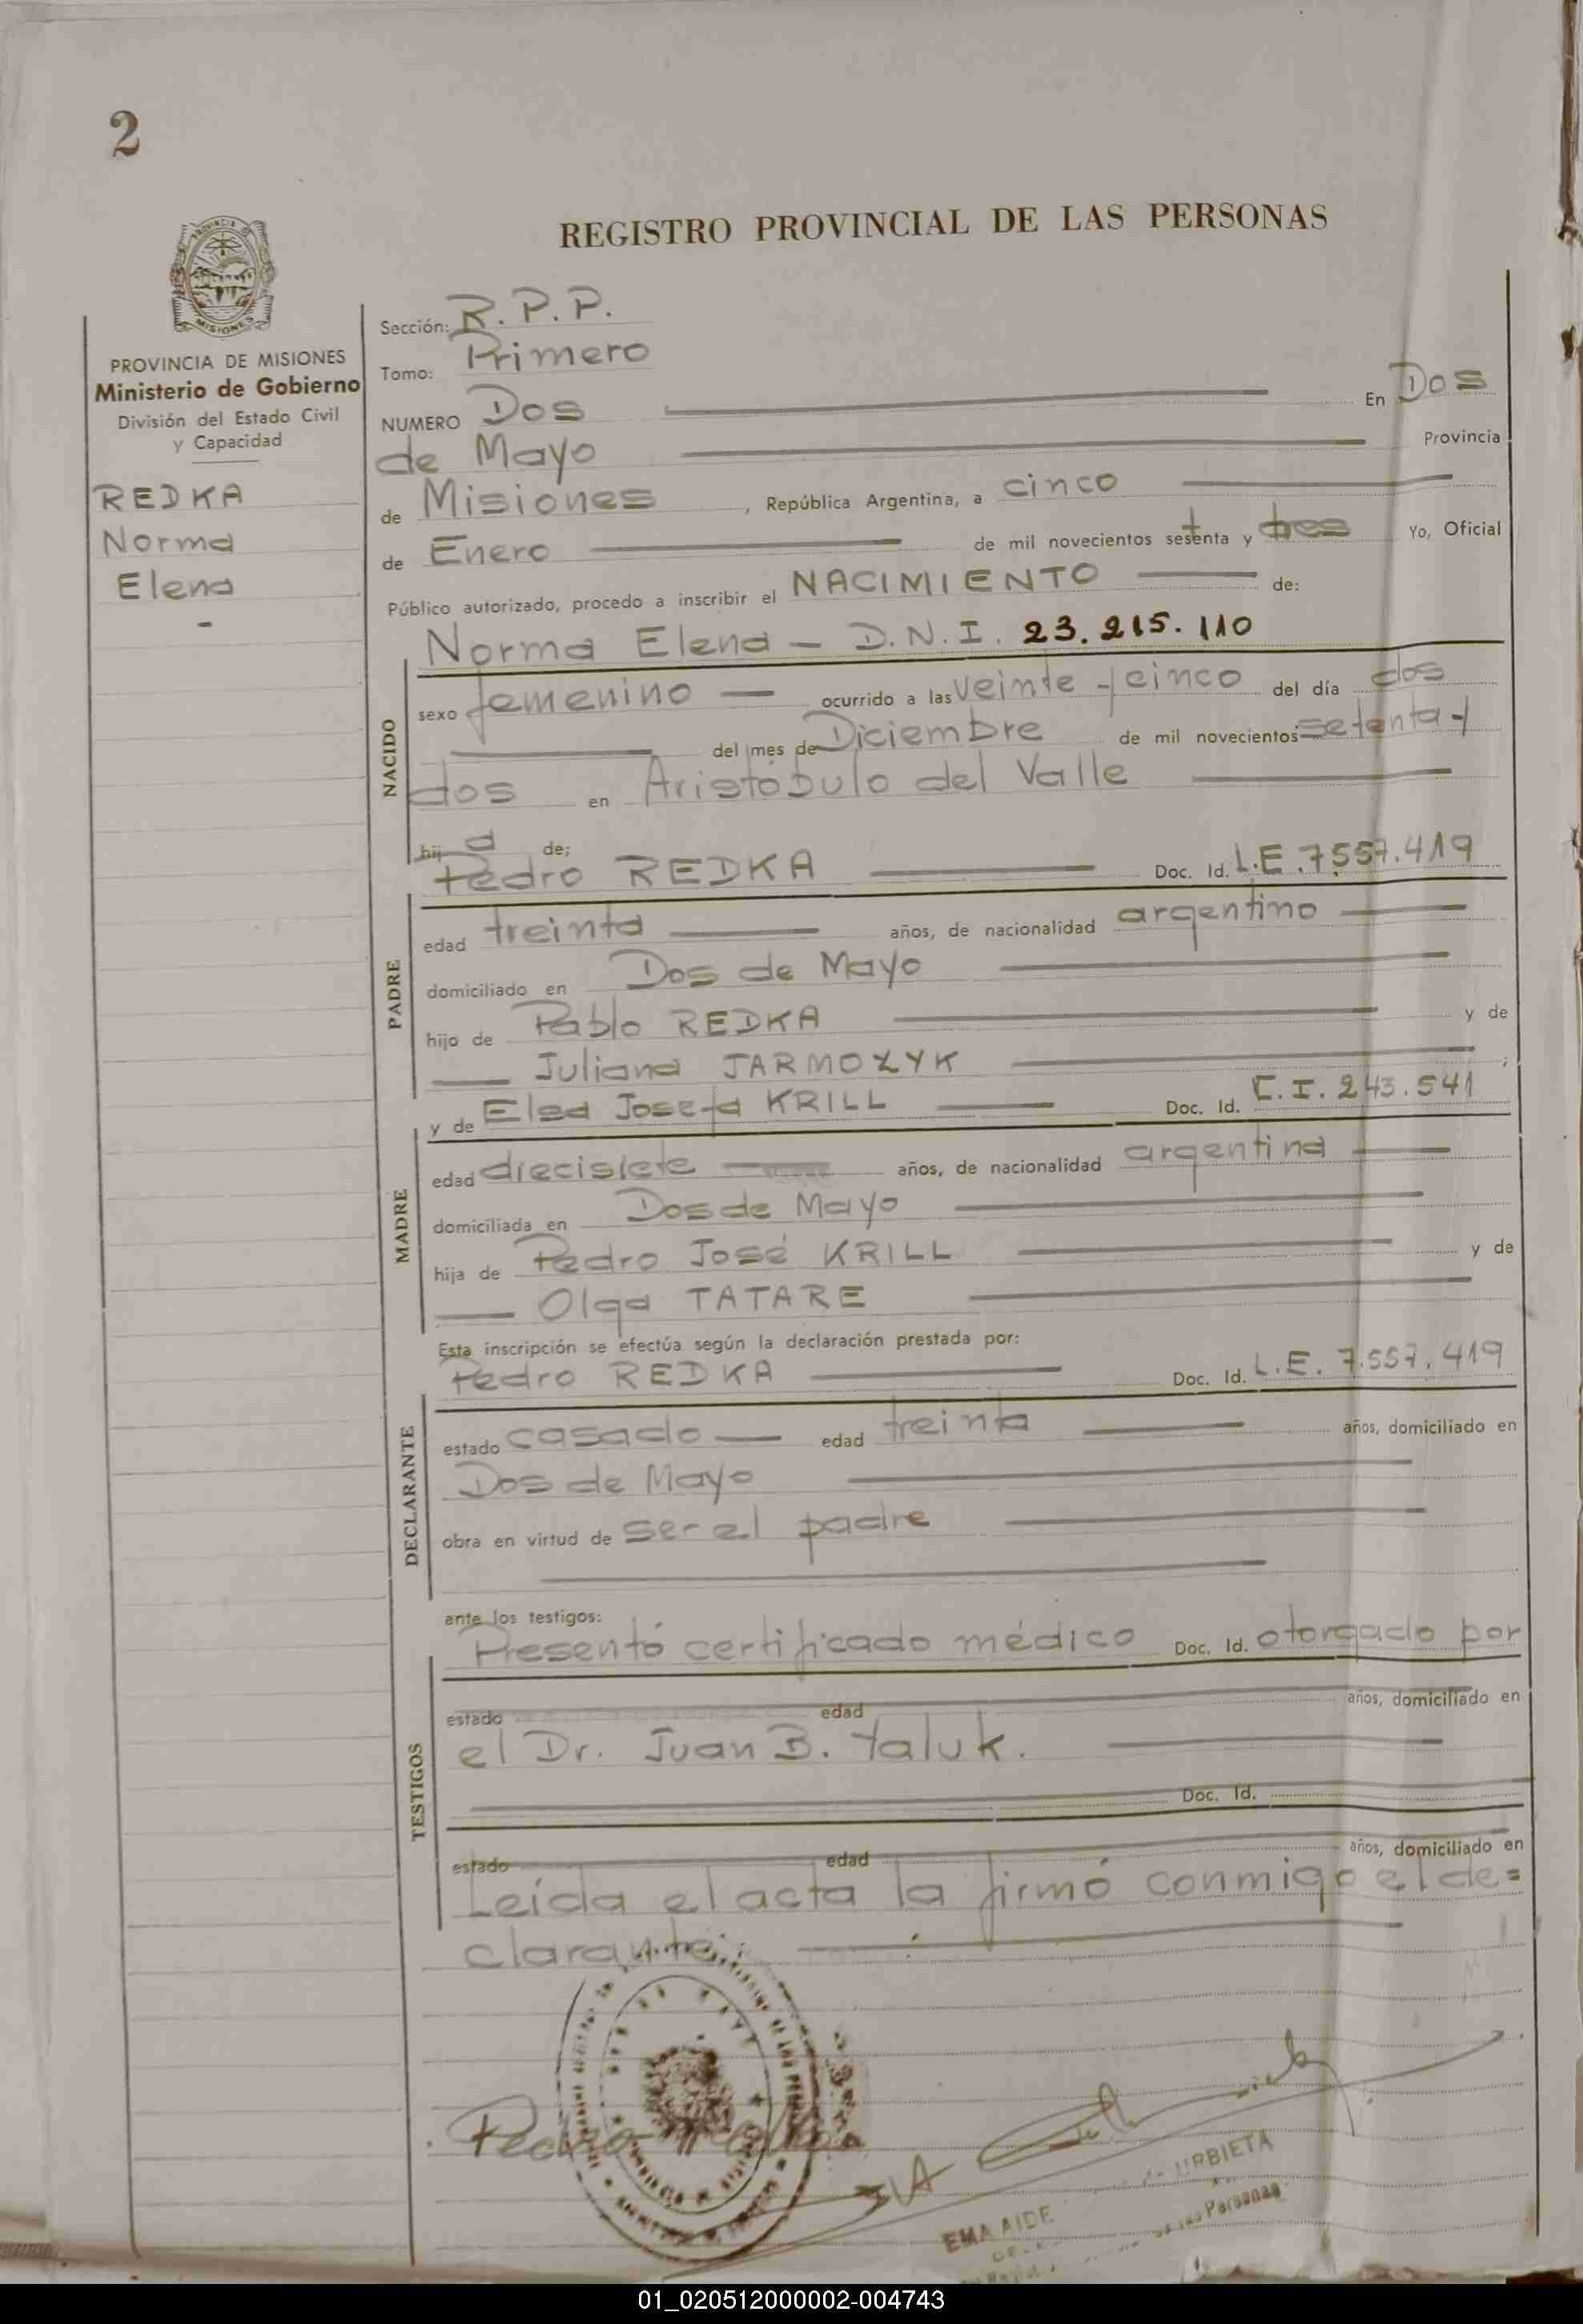 2
REGISTRO PROVINCIAL DE LAS PERSONAS
PROVINCIA DE MISIONES
Ministerio de Gobierno
División del Estado Civil
y Capacidad
REDKA
Norma
Elena
-
Sección: R. P. P.
Tomo: Primero
NUMERO Dos En Dos
de Mayo Provincia
de Misiones , República Argentina, a cinco
de Enero de mil novecientos setenta y tres Yo, Oficial
Público autorizado, procedo a inscribir el NACIMIENTO de:
Norma Elena — D.N.I. 23.215.110
NACIDO
sexo femenino — ocurrido a las veinte y cinco del día dos
del mes de Diciembre de mil novecientos setenta y
dos en Aristóbulo del Valle
hij a de;
Pedro REDKA Doc. Id. L.E. 7.557.419
PADRE
edad treinta años, de nacionalidad argentino
domiciliado en Dos de Mayo
hijo de Pablo REDKA y de
Juliana JARMOZYK ;
y de Elsa Josefa KRILL Doc. Id. C.I. 243.541
MADRE
edad diecisiete años, de nacionalidad argentina
domiciliada en Dos de Mayo
hija de Pedro José KRILL y de
Olga TATARE
Esta inscripción se efectúa según la declaración prestada por:
Pedro REDKA Doc. Id. L.E. 7.557.419
DECLARANTE
estado casado — edad treinta años, domiciliado en
Dos de Mayo
obra en virtud de ser el padre
ante los testigos:
Presentó certificado médico Doc. Id. otorgado por
TESTIGOS
estado edad años, domiciliado en
el Dr. Juan B. Yaluk.
Doc. Id.
estado edad años, domiciliado en
Leída el acta la firmó conmigo el de=
clarante.
Pedro
EMA AIDE URBIETA
Personas
01_020512000002-004743